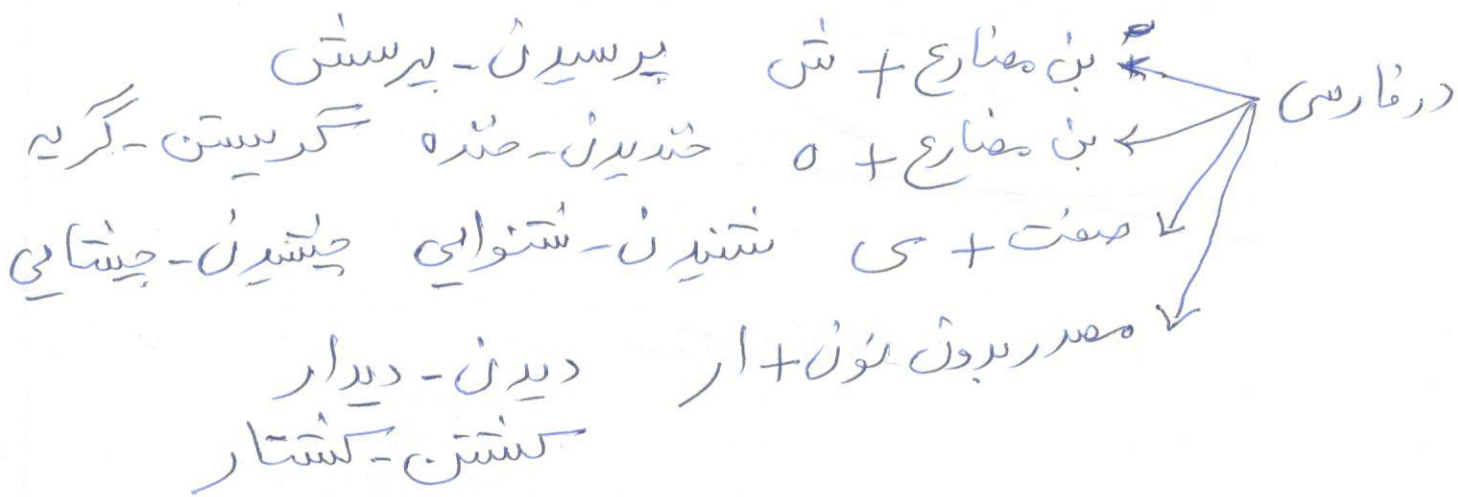 در فارسی
بن مضارع + ش پرسیدن - پرسش
بن مضارع + ه خندیدن - خنده گریستن - گریه
صفت + ی شنیدن - شنوایی چشیدن - چشایی
مصدر بدون نون + ار دیدن - دیدار
کشتن - کشتار